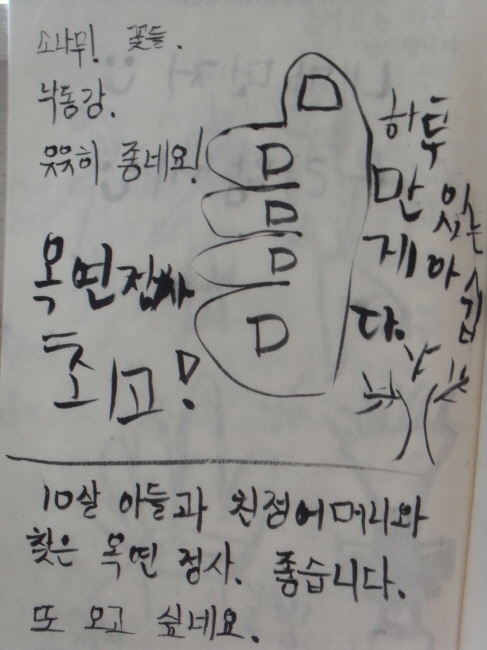 소나무! 꽃들.
낙동강.
좋네요!
옥연정사
최고!
하루
만 있는
게 아쉽
다.
10살 아들과 친정어머니와
찾은 옥연 정사. 좋습니다.
또 오고 싶네요.